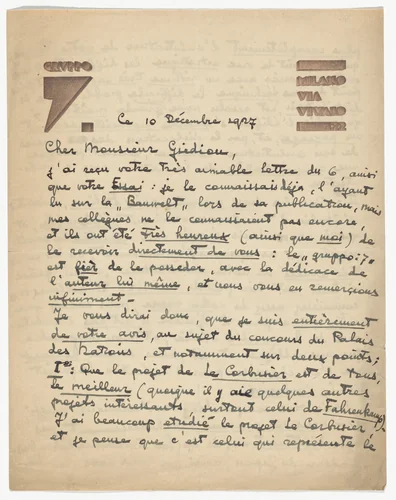 GRUPPO
7.
MILANO
VIA
VITRUVIO
Ce 10 Décembre 1927
Cher Monsieur Giedion,
j'ai reçu votre très aimable lettre du 6, ainsi
que votre Essai : je le connaissais déjà, l'ayant
lu sur la „Bauwelt" lors de sa publication, mais
mes collègues ne le connaissaient pas encore,
et ils ont été très heureux (ainsi que moi) de
le recevoir directement de vous : le „gruppo 7"
est fier de le posseder, avec la dédicace de
l'auteur lui même, et nous vous en remercions
infiniment.
Je vous dirai donc, que je suis entièrement
de votre avis, au sujet du concours du Palais
des Nations, et notamment sur deux points :
Iº: Que le projet de Le Corbusier est de tous,
le meilleur (quoique il y aie quelques autres
projets intéressants surtout celui de Fahrenkamp)
J'ai beaucoup etudié le projet Le Corbusier
et je pense que c'est celui qui représente le